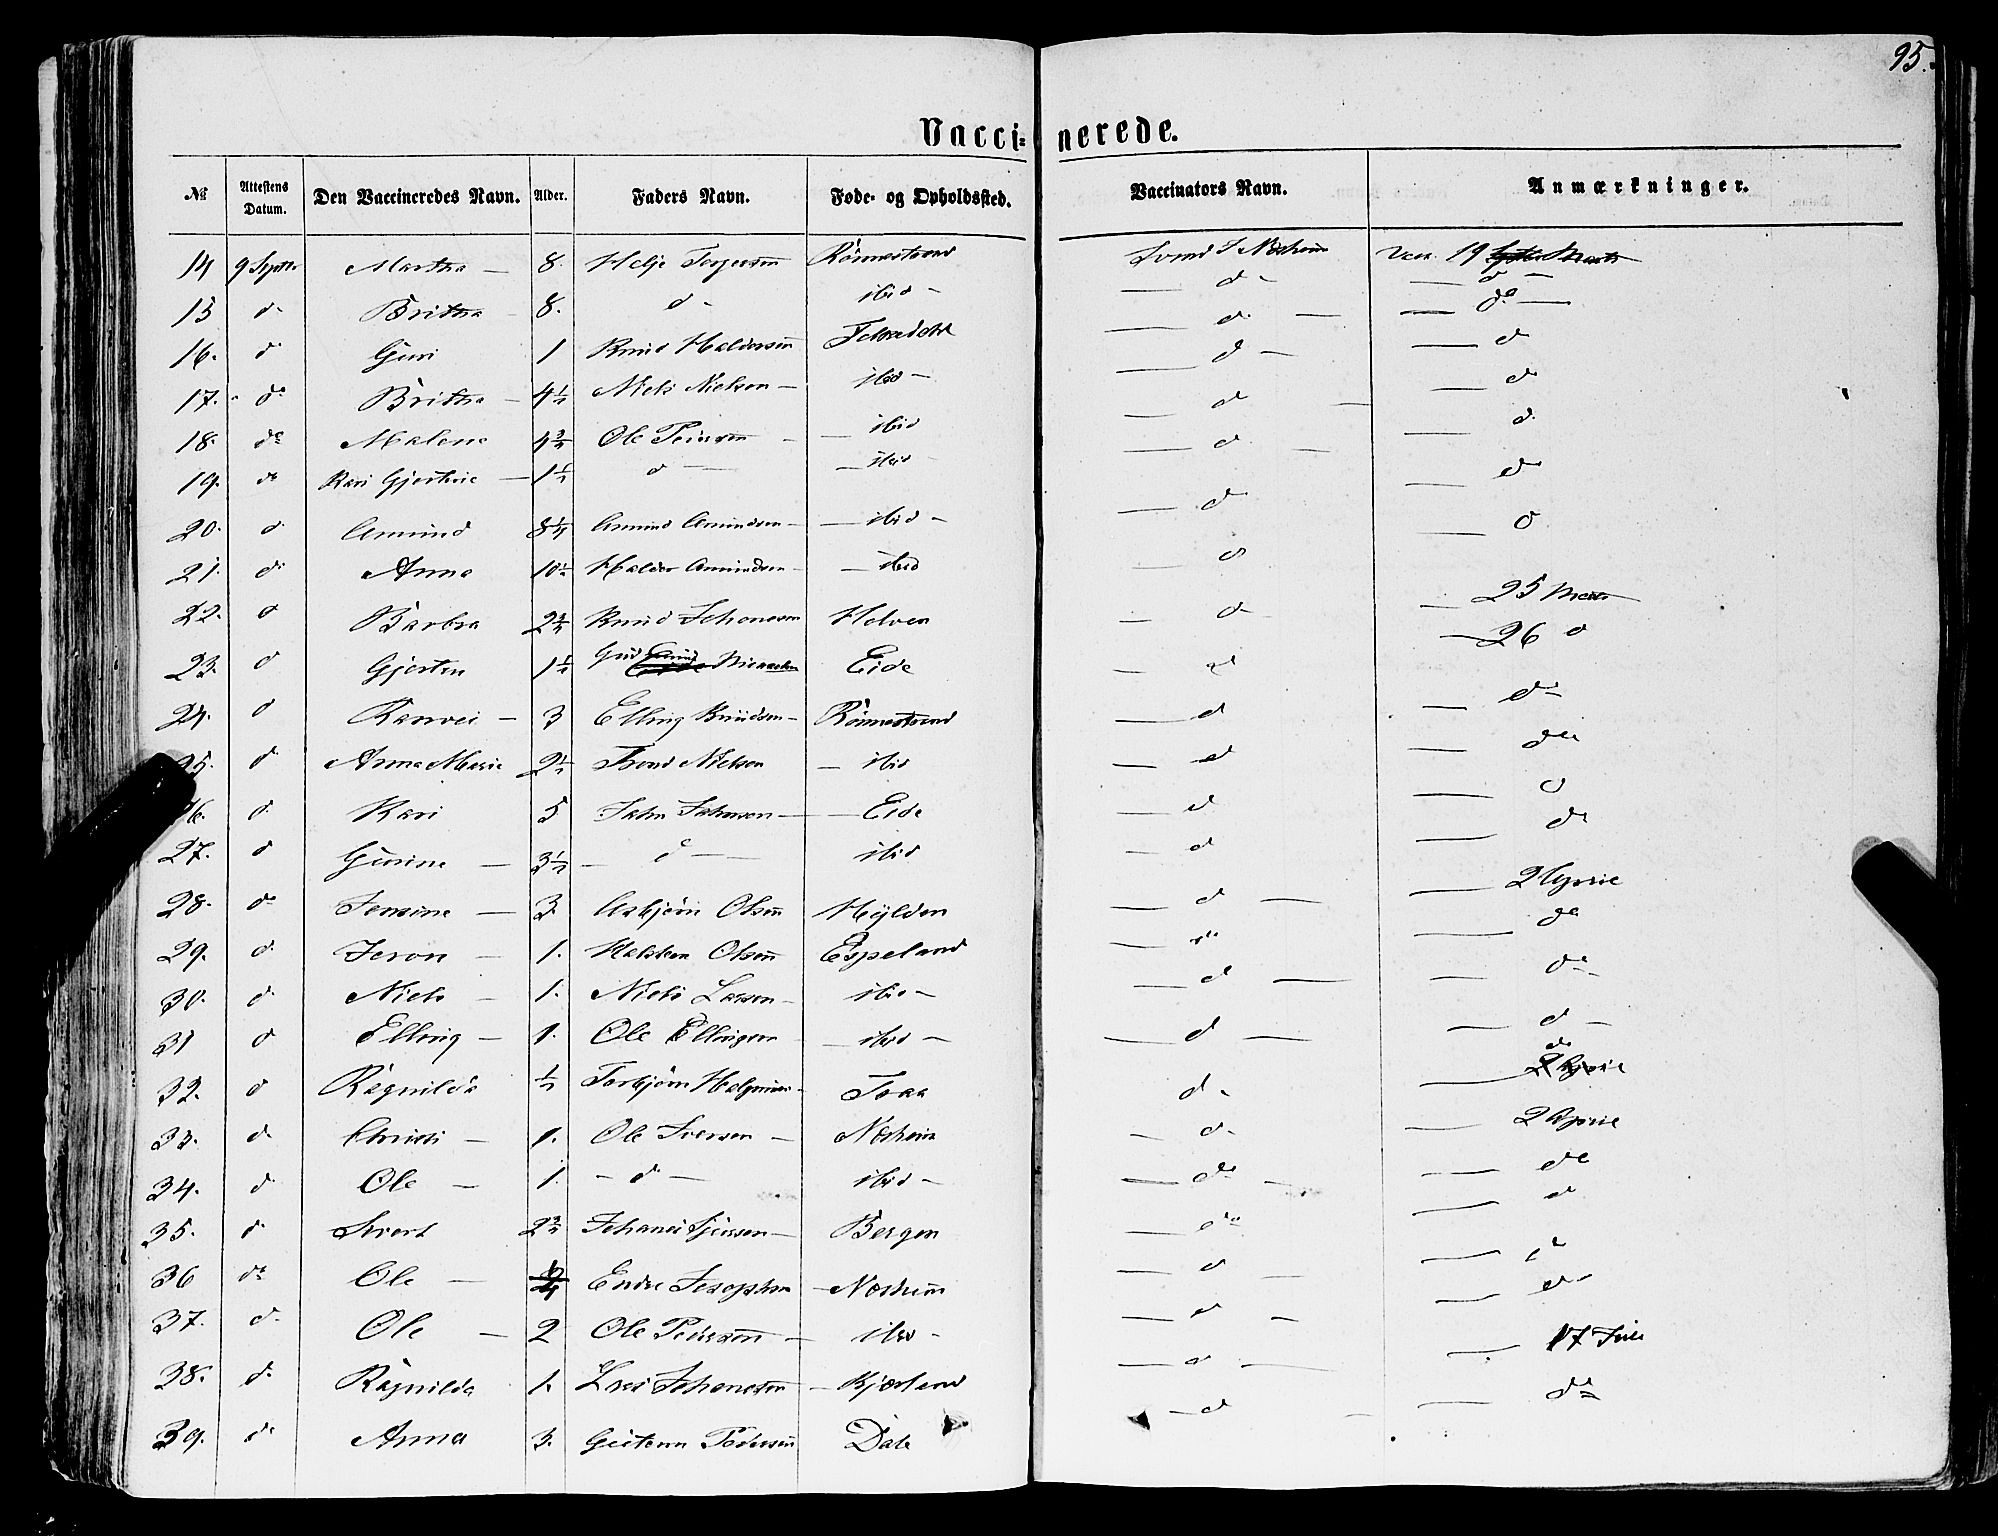 95.
Vaccinerede.
№ Attestens Datum. Den Vaccineredes Navn. Alder. Faders Navn. Føde- og Opholdssted. Vaccinators Navn. Anmærkninger.
14 9 Septbr Martha 8. Helje Torgersen Rønnestrand Svend S Næsheim Vacc. 19
15 d Britha 8. d ibid d d
16. d Guri 1 Knud Haldorsen d d
17. do Britha 4½ Niels Nielsen ibid d d
18. do Malene 4¾ Ole Peersen ibid d d
19. do Kari Gjertine 1½ d ibid d d
20. d Amund 8¼ Amund Amundsen ibid d d
21. d Anna 10½ Haldor Amundsen ibid d d
22. d Barbra 2¾ Knud Johannesen Helven d 25 Marts
23. d Gjerten 1½ Eide d 26 d
24. d Ranvei 3 Elling Knudsen Rønnestrand d d
25. d Anna Marie 2½ Trond Nielsen ibid d do
26. d Kari 5 John Johnsen Eide d d
27. d Gurine 3½ d ibid d d
28. do Jensine 3 Asbjørn Olsen Hylden d 2 April
29. d Jeron 1. Halsten Olsen Espeland do do
30. d Niels 1. Niels Larsen ibid d do
31 d Elling 1. Ole Ellingsen ibid d d
32. d Ragnilda ½ Torbjørn Traa d do
33. d Christi 1. Ole Iversen Næsheim d 2 April
34. d Ole 1. d ibid do do
35. d Sivert 2¾ Johannes Bergen do d
36 do Ole Endre Josephsen Næsheim d d
37. d Ole 2 Ole Peersen ibid d d
38. d Ragnilda 1. Lars Johannesen Kjærland d 17 Juli
39. d Anna 3. Guttorm Pedersen Dale d do